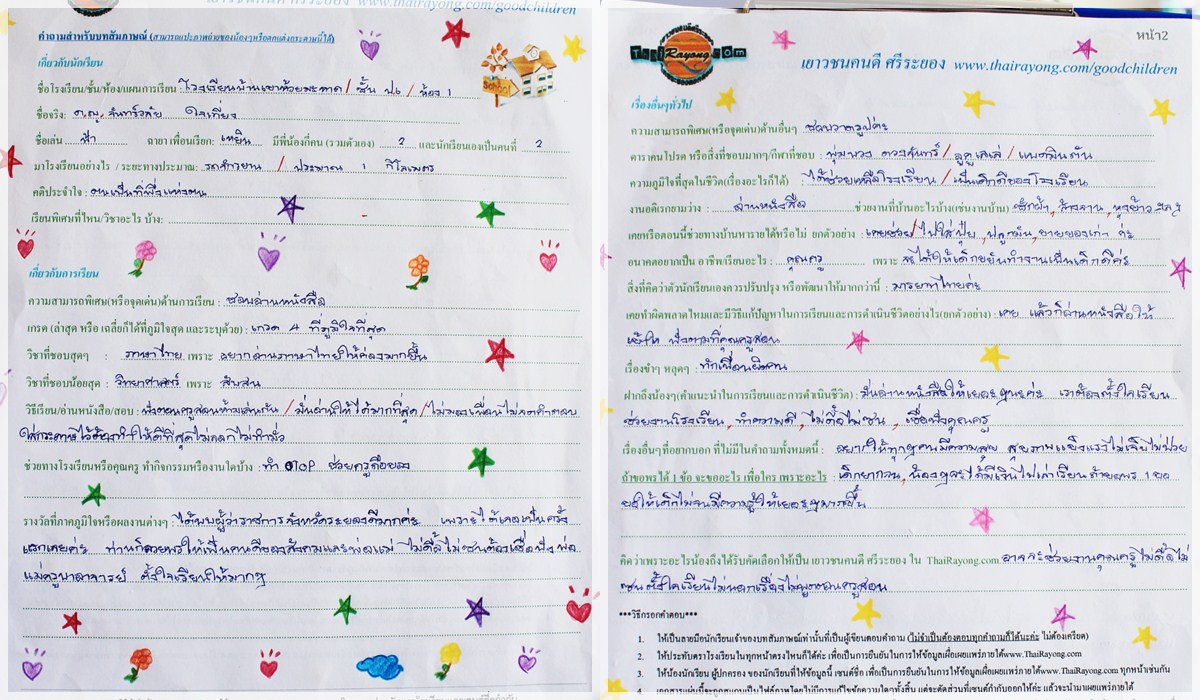 www.thairayong.com/goodchildren
คำถามสำหรับบทสัมภาษณ์ (สามารถแปะภาพถ่ายของน้องๆหรือตกแต่งกระดาษนี้ได้)
เกี่ยวกับนักเรียน
ชื่อโรงเรียน/ชั้น/ห้อง/แผนการเรียน : โรงเรียนบ้านเขาห้วยมะหาด / ชั้น ป.6 / ห้อง 1
ชื่อจริง: ด.ญ. จันทร์วลัย ใจเที่ยง
ชื่อเล่น ฟ้า ฉายา เพื่อนเรียก: เหยิน มีพี่น้องกี่คน (รวมตัวเอง) 2 และนักเรียนเองเป็นคนที่ 2
มาโรงเรียนอย่างไร / ระยะทางประมาณ: รถจักรยาน / ประมาณ 1 กิโลเมตร
คติประจำใจ : ตนเป็นที่พึ่งแห่งตน
เรียนพิเศษที่ไหน/วิชาอะไร บ้าง: -
เกี่ยวกับการเรียน
ความสามารถพิเศษ(หรือจุดเด่น)ด้านการเรียน : ชอบอ่านหนังสือ
เกรด (ล่าสุด หรือ เฉลี่ยก็ได้ที่ภูมิใจสุด และระบุด้วย) : เกรด 4 ที่ภูมิใจที่สุด
วิชาที่ชอบสุดๆ : ภาษาไทย เพราะ อยากอ่านภาษาไทยให้คล่องมากขึ้น
วิชาที่ชอบน้อยสุด : วิทยาศาสตร์ เพราะ สับสน
วิธีเรียน/อ่านหนังสือ/สอบ : ฟังตอนครูสอนห้ามเล่นกัน / มั่นอ่านให้ได้มากที่สุด / ไม่มองเพื่อนไม่จดคำตอบ
ใส่กระดาษไว้ต้องทำให้ดีที่สุดไม่ลอกไม่ทำมั่ว
ช่วยทางโรงเรียนหรือคุณครู ทำกิจกรรมหรืองานใดบ้าง : ทำ OTOP ช่วยครูถือของ
รางวัลที่ภาคภูมิใจหรือผลงานต่างๆ : ได้พบผู้ว่าราชการจังหวัดระยองดีมากค่ะ เพราะได้เจอเป็นครั้ง
แรกเลยค่ะ ท่านก็อวยพรให้เป็นคนดีของสังคมและพ่อแม่ ไม่ดื้อไม่ซนต้องเชื่อฟังพ่อ
แม่ครูบาอาจารย์ ตั้งใจเรียนให้มากๆ
ThaiRayong.com
หน้า2
เยาวชนคนดี ศรีระยอง www.thairayong.com/goodchildren
เรื่องอื่นๆทั่วไป
ความสามารถพิเศษ(หรือจุดเด่น)ด้านอื่นๆ ชอบวาดรูปค่ะ
ดาราคนโปรด หรือสิ่งที่ชอบมากๆ/กีฬาที่ชอบ : พุ่มพวง ดวงจันทร์ / อูคูเลเล่ / แบดมินตัน
ความภูมิใจที่สุดในชีวิต(เรื่องอะไรก็ได้) : ได้ช่วยเหลือโรงเรียน / เป็นเด็กดีของโรงเรียน
งานอดิเรกยามว่าง : อ่านหนังสือ ช่วยงานที่บ้านอะไรบ้าง(เช่นงานบ้าน) ซักผ้า, ล้างจาน, หุงข้าว ฯลฯ
เคยหรือตอนนี้ช่วยทางบ้านหารายได้หรือไม่ ยกตัวอย่าง : เคยช่วย / ไปใส่ปุ๋ย, ปลูกมัน, ขายของเก่า ค่ะ
อนาคตอยากเป็น อาชีพ/เรียนอะไร : คุณครู เพราะ จะได้ให้เด็กขยันทำงานเป็นเด็กดีค่ะ
สิ่งที่คิดว่าตัวนักเรียนเองควรปรับปรุง หรือพัฒนาให้มากกว่านี้ : มารยาทไทยค่ะ
เคยทำผิดพลาดไหมและมีวิธีแก้ปัญหาในการเรียนและการดำเนินชีวิตอย่างไร(ยกตัวอย่าง) : เคย แล้วก็อ่านหนังสือให้
เข้าใจ ฟังตามที่คุณครูสอน
เรื่องขำๆ หลุดๆ : ทักเพื่อนผิดคน
ฝากถึงน้องๆ(คำแนะนำในการเรียนและการดำเนินชีวิต) : มั่นอ่านหนังสือให้เยอะๆนะค่ะ เราต้องตั้งใจเรียน
ช่วยงานโรงเรียน, ทำความดี, ไม่ดื้อไม่ซน, เชื่อฟังคุณครู
เรื่องอื่นๆที่อยากบอก ที่ไม่มีในคำถามทั้งหมดนี้ : อยากให้ทุกๆคนมีความสุข สุขภาพแข็งแรงไม่เจ็บไม่ป่วย
ถ้าขอพรได้ 1 ข้อ จะขออะไร เพื่อใคร เพราะอะไร : เด็กยากจน, น้องๆจะได้มีเงินไปเล่าเรียน ถ้าขอพร 1 ข้อ
ขอให้เด็กไม่จนมีความรู้ให้เยอะๆมากขึ้น
คิดว่าเพราะอะไรน้องถึงได้รับคัดเลือกให้เป็น เยาวชนคนดี ศรีระยอง ใน ThaiRayong.com อาจจะช่วยงานคุณครูไม่ดื้อไม่
ซนตั้งใจเรียนไม่นอกเรื่องไม่พูดตอนครูสอน
***วิธีกรอกคำตอบ*
1. ให้เป็นลายมือนักเรียนเจ้าของบทสัมภาษณ์เท่านั้นที่เป็นผู้เขียนตอบคำถาม (ไม่จำเป็นต้องตอบทุกคำถามก็ได้นะค่ะ ไม่ต้องเครียด)
2. ให้ประทับตราโรงเรียนในทุกหน้าตรงไหนก็ได้ค่ะ เพื่อเป็นการยืนยันในการให้ข้อมูลเผื่อเผยแพร่ภายใต้www.ThaiRayong.com
3. ให้น้องนักเรียน ผู้ปกครอง ของนักเรียนที่ให้ข้อมูลนี้ เซนต์ชื่อ เพื่อเป็นการยืนยันในการให้ข้อมูลเผื่อเผยแพร่ภายใต้www.ThaiRayong.com ทุกหน้าเช่นกัน